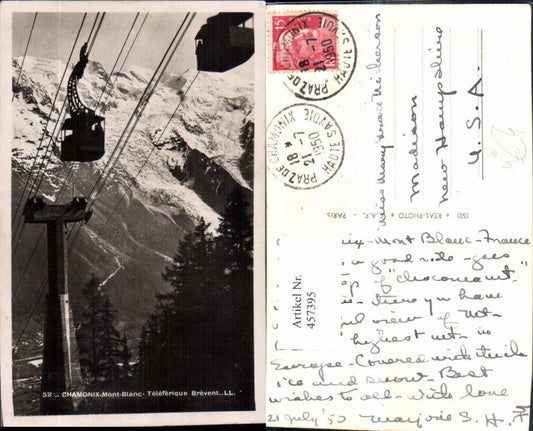 52 _ CHAMONIX-Mont-Blanc - Téléférique Brévent_ LL.
15
PRAZ DE CHAMONIX
18 - 7
21
1950
HAUTE SAVOIE
PRAZ DE CHAMONIX
18 - 7
21
1950
HAUTE SAVOIE
Miss Mary
Madison
New Hampshire
U.S.A.
(50) * REAL-PHOTO * C.A.P. - PARIS
Artikel Nr.
457395
ix - Mont Blanc - France
good ride - goes
of
- there you have
view of
highest mt. in
Europe - Covered with
ice and snow - Best
wishes to all - with love
21 July '50 Marjorie S. H.